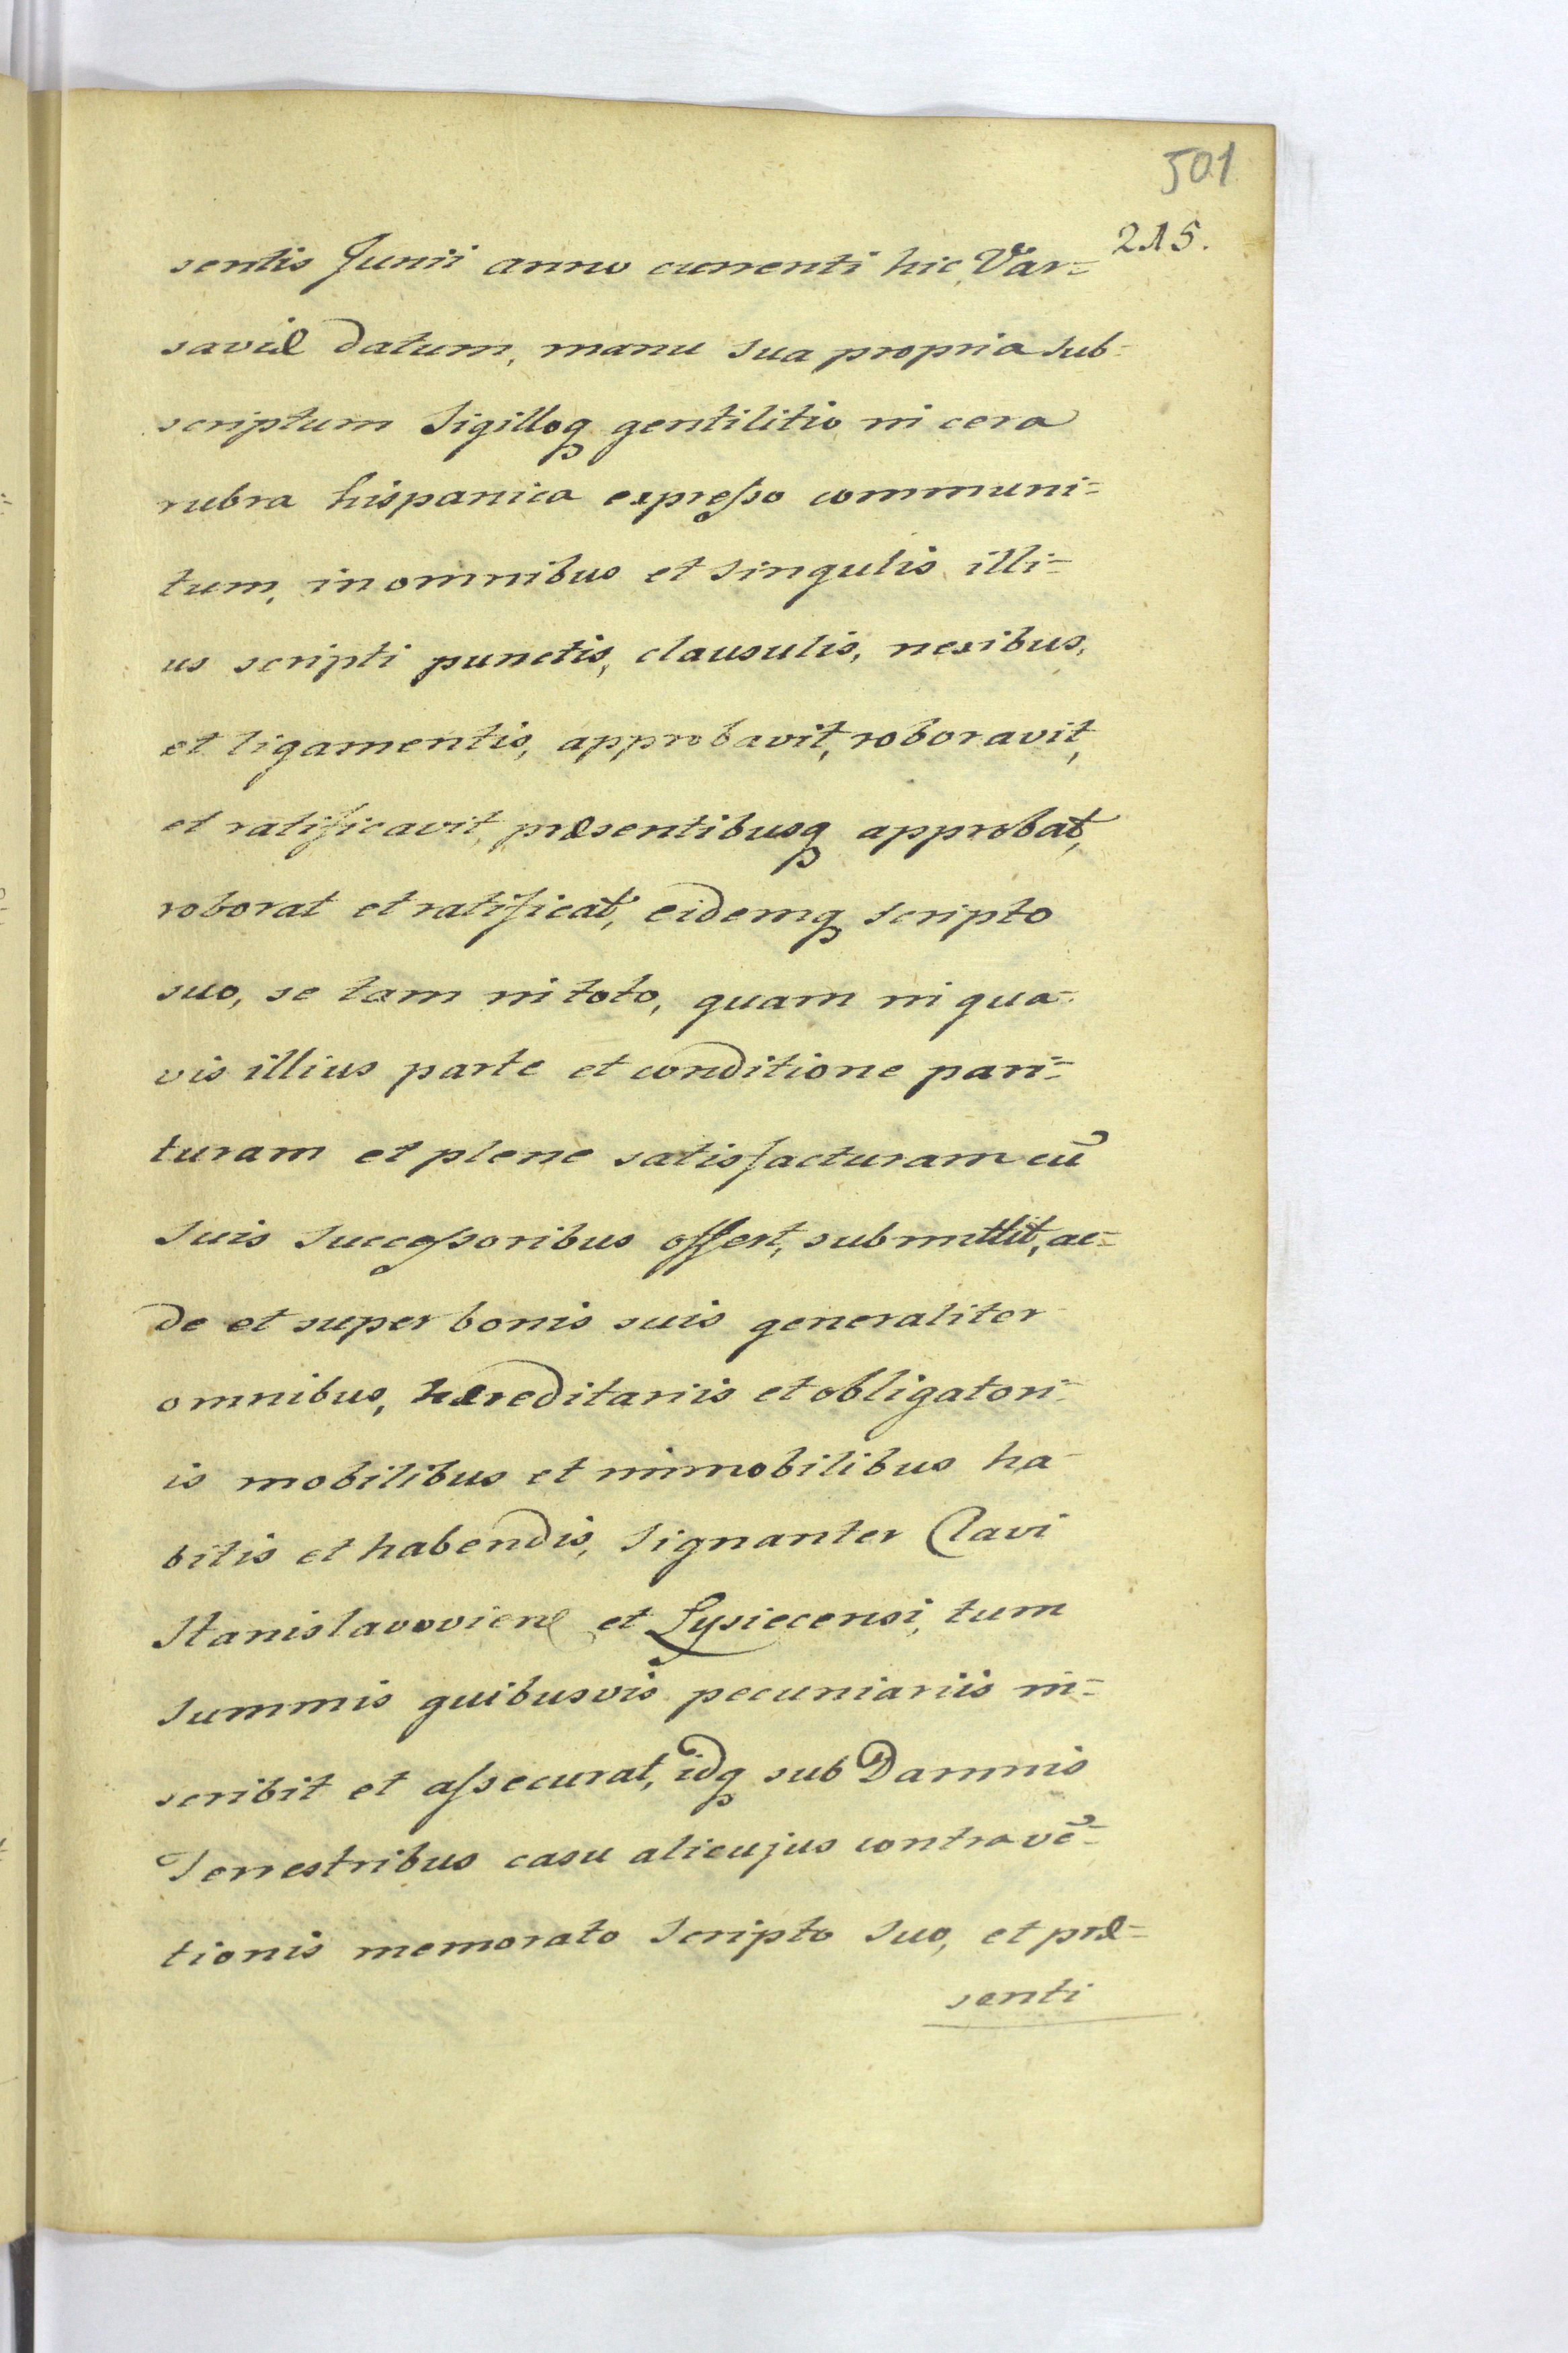 501
215.
sentis Junii anno currenti hic Var=
saviæ datum, manu sua propria sub=
scriptum Sigilloq gentilitio in cera
rubra hispanica expresso communi=
tum, in omnibus et singulis illi=
us scripti punctis, clausulis, nexibus,
et ligamentis, approbavit, roboravit,
et ratificavit, præsentibusq approbat,
roborat et ratificat, eidemq scripto
suo, se tam in toto, quam in qua=
vis illius parte et conditione pari=
turam et plene satisfacturam cū
suis successoribus offert, submittit, ac=
de et super bonis suis generaliter
omnibus, hæreditariis et obligatori=
is mobilibus et immobilibus ha=
bitis et habendis, signanter Clavi
Stanislavoviene et Lysiecensi, tum
summis quibusvis pecuniariis in=
scribit et assecurat, idq sub Damnis
Terrestribus casu alicujus contravē=
tionis memorato Scripto suo, et præ=
senti